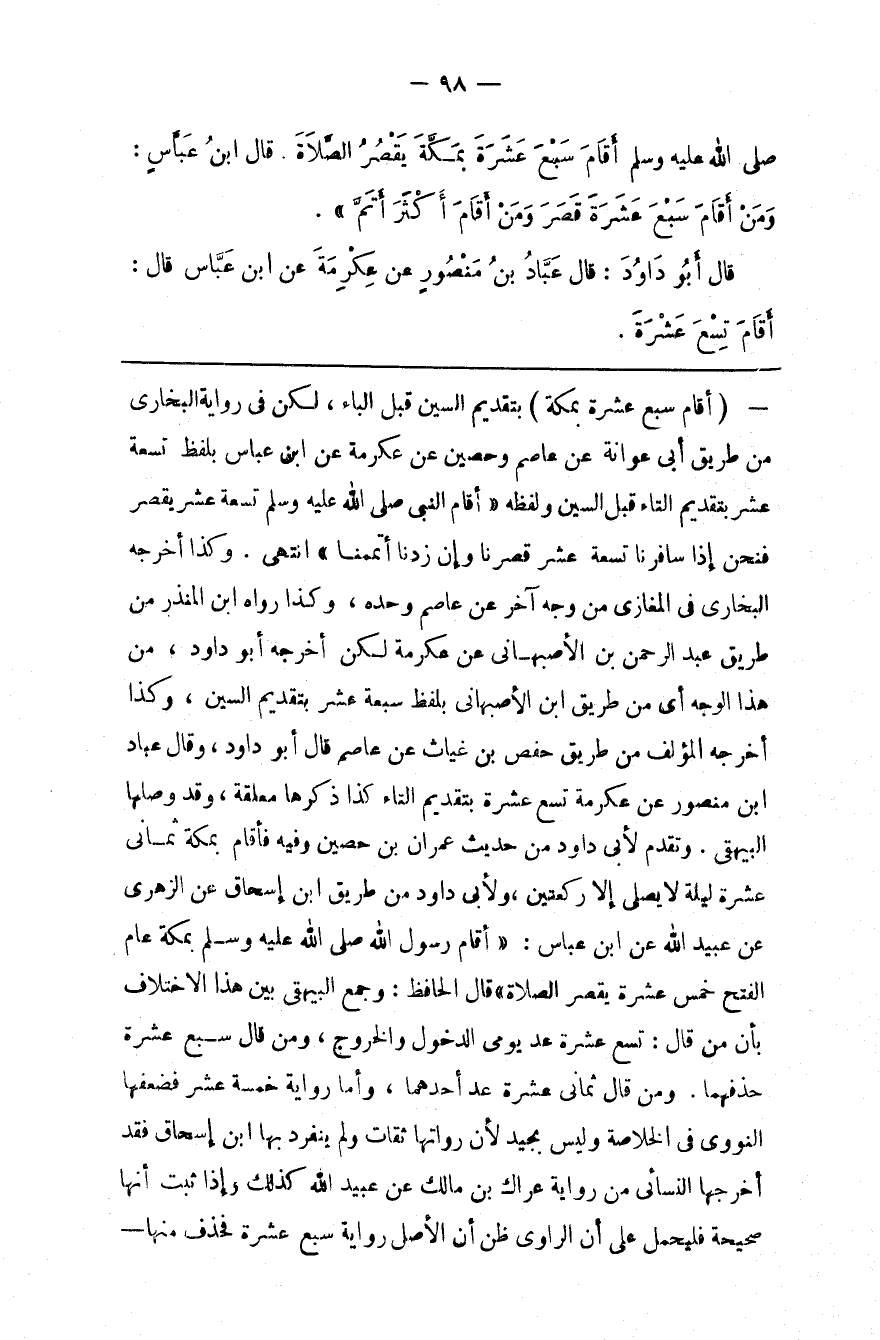 — ٩٨ —
صلى الله عليه وسلم أَقَامَ سَبْعَ عَشَرَةَ بِمَكَّةَ يَقْصُرُ الصَّلَاةَ . قال ابنُ عَبَّاسٍ :
وَمَنْ أَقَامَ سَبْعَ عَشَرَةَ قَصَرَ وَمَنْ أَقَامَ أَكْثَرَ أَتَمَّ » .
قال أَبُو دَاوُدَ : قال عَبَّادُ بنُ مَنْصُورٍ عن عِكْرِمَةَ عن ابن عَبَّاس قال :
أَقَامَ تِسْعَ عَشْرَةَ .
— ( أقام سبع عشرة بمكة ) بتقديم السين قبل الباء ، لكن فى رواية البخارى
من طريق أبى عوانة عن عاصم وحصين عن عكرمة عن ابن عباس بلفظ تسعة
عشر بتقديم التاء قبل السين ولفظه « أقام النبى صلى الله عليه وسلم تسعة عشر يقصر
فنحن إذا سافرنا تسعة عشر قصرنا وإن زدنا أتممنا » انتهى . وكذا أخرجه
البخارى فى المغازى من وجه آخر عن عاصم وحده ، وكذا رواه ابن المنذر من
طريق عبد الرحمن بن الأصبهانى عن عكرمة لكن أخرجه أبو داود ، من
هذا الوجه أى من طريق ابن الأصبهانى بلفظ سبعة عشر بتقديم السين ، وكذا
أخرجه المؤلف من طريق حفص بن غياث عن عاصم قال أبو داود ، وقال عباد
ابن منصور عن عكرمة تسع عشرة بتقديم التاء كذا ذكرها معلقة ، وقد وصلها
البيهقى . وتقدم لأبى داود من حديث عمران بن حصين وفيه فأقام بمكة ثمانى
عشرة ليلة لا يصلى إلا ركعتين ، ولأبى داود من طريق ابن إسحاق عن الزهرى
عن عبيد الله عن ابن عباس : « أقام رسول الله صلى الله عليه وسلم بمكة عام
الفتح خمس عشرة يقصر الصلاة » قال الحافظ : وجمع البيهقى بين هذا الاختلاف
بأن من قال : تسع عشرة عد يومى الدخول والخروج ، ومن قال سبع عشرة
حذفهما . ومن قال ثمانى عشرة عد أحدهما ، وأما رواية خمسة عشر فضعفها
النووى فى الخلاصة وليس بجيد لأن رواتها ثقات ولم ينفرد بها ابن إسحاق فقد
أخرجها النسائى من رواية عراك بن مالك عن عبيد الله كذلك وإذا ثبت أنها
صحيحة فليحمل على أن الراوى ظن أن الأصل رواية سبع عشرة فحذف منها —